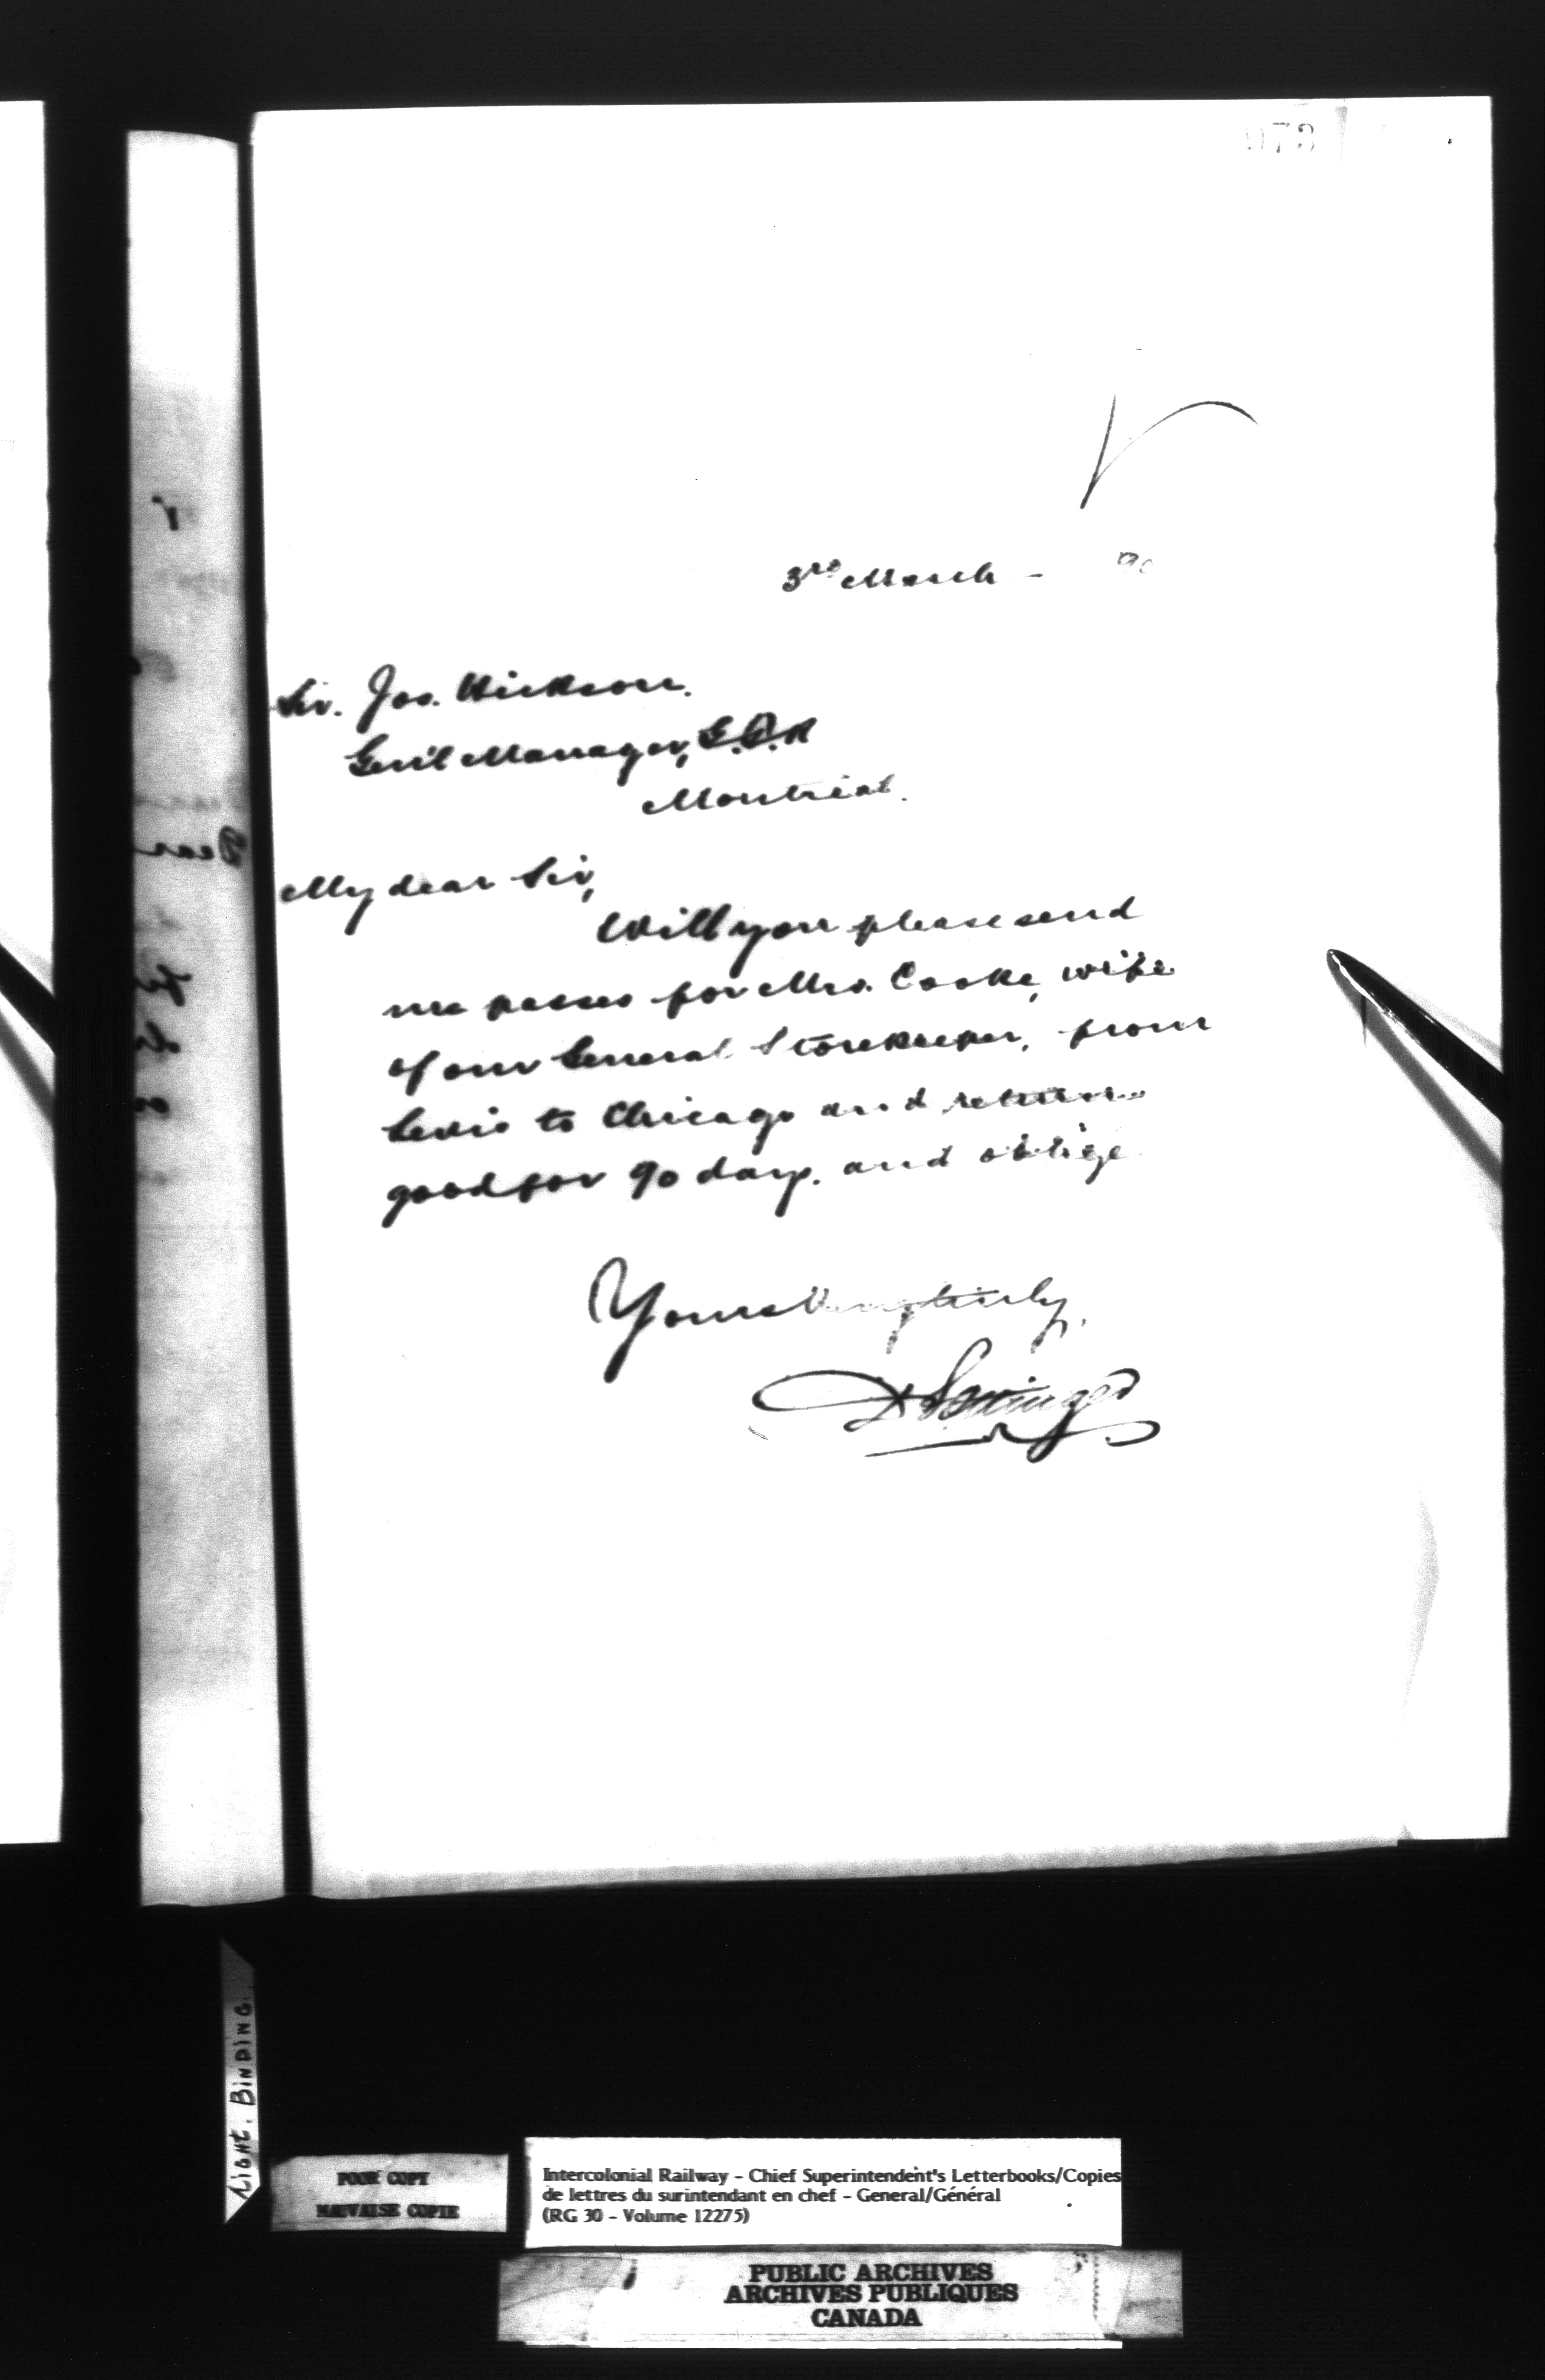 973
3rd March - 90
Sir. Jos. Hickson.
Gen'l Manager, G.T.R
Montreal.
My dear Sir,
Will you please send
me passes for Mrs. Cooke, wife
of our General Storekeeper, from
Levis to Chicago and return
good for 90 days. and oblige
Yours Very truly,
D Pottinger
LIGHT. BINDING.
POOR COPY
MAUVAISE COPIE
Intercolonial Railway - Chief Superintendent's Letterbooks/Copies
de lettres du surintendant en chef - General/Général
(RG 30 - Volume 12275)
PUBLIC ARCHIVES
ARCHIVES PUBLIQUES
CANADA